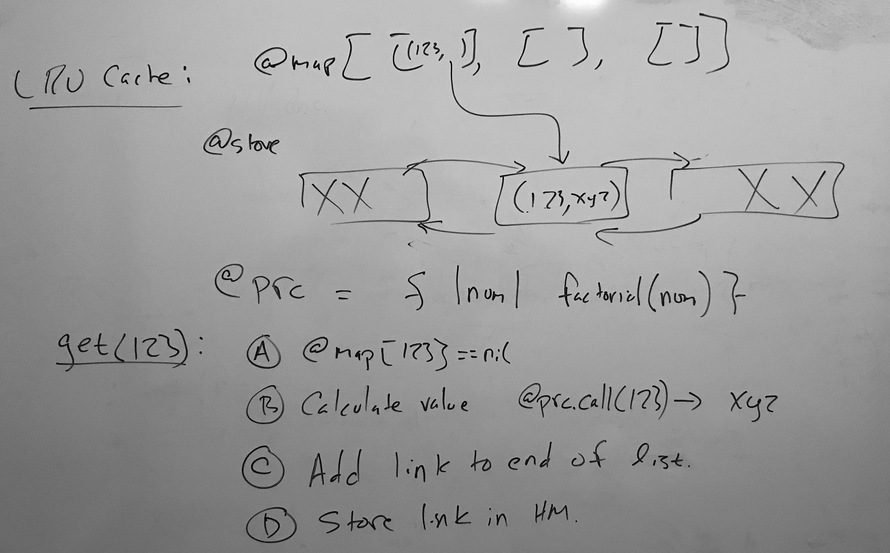 LRU Cache:
@map[ [(123, )], [ ], [ ] ]
@store
XX
(123,xyz)
XX
@prc = { |num| factorial(num) }
get(123):
A @map[123]==nil
B Calculate value @prc.call(123)→ xyz
C Add link to end of list.
D Store link in HM.